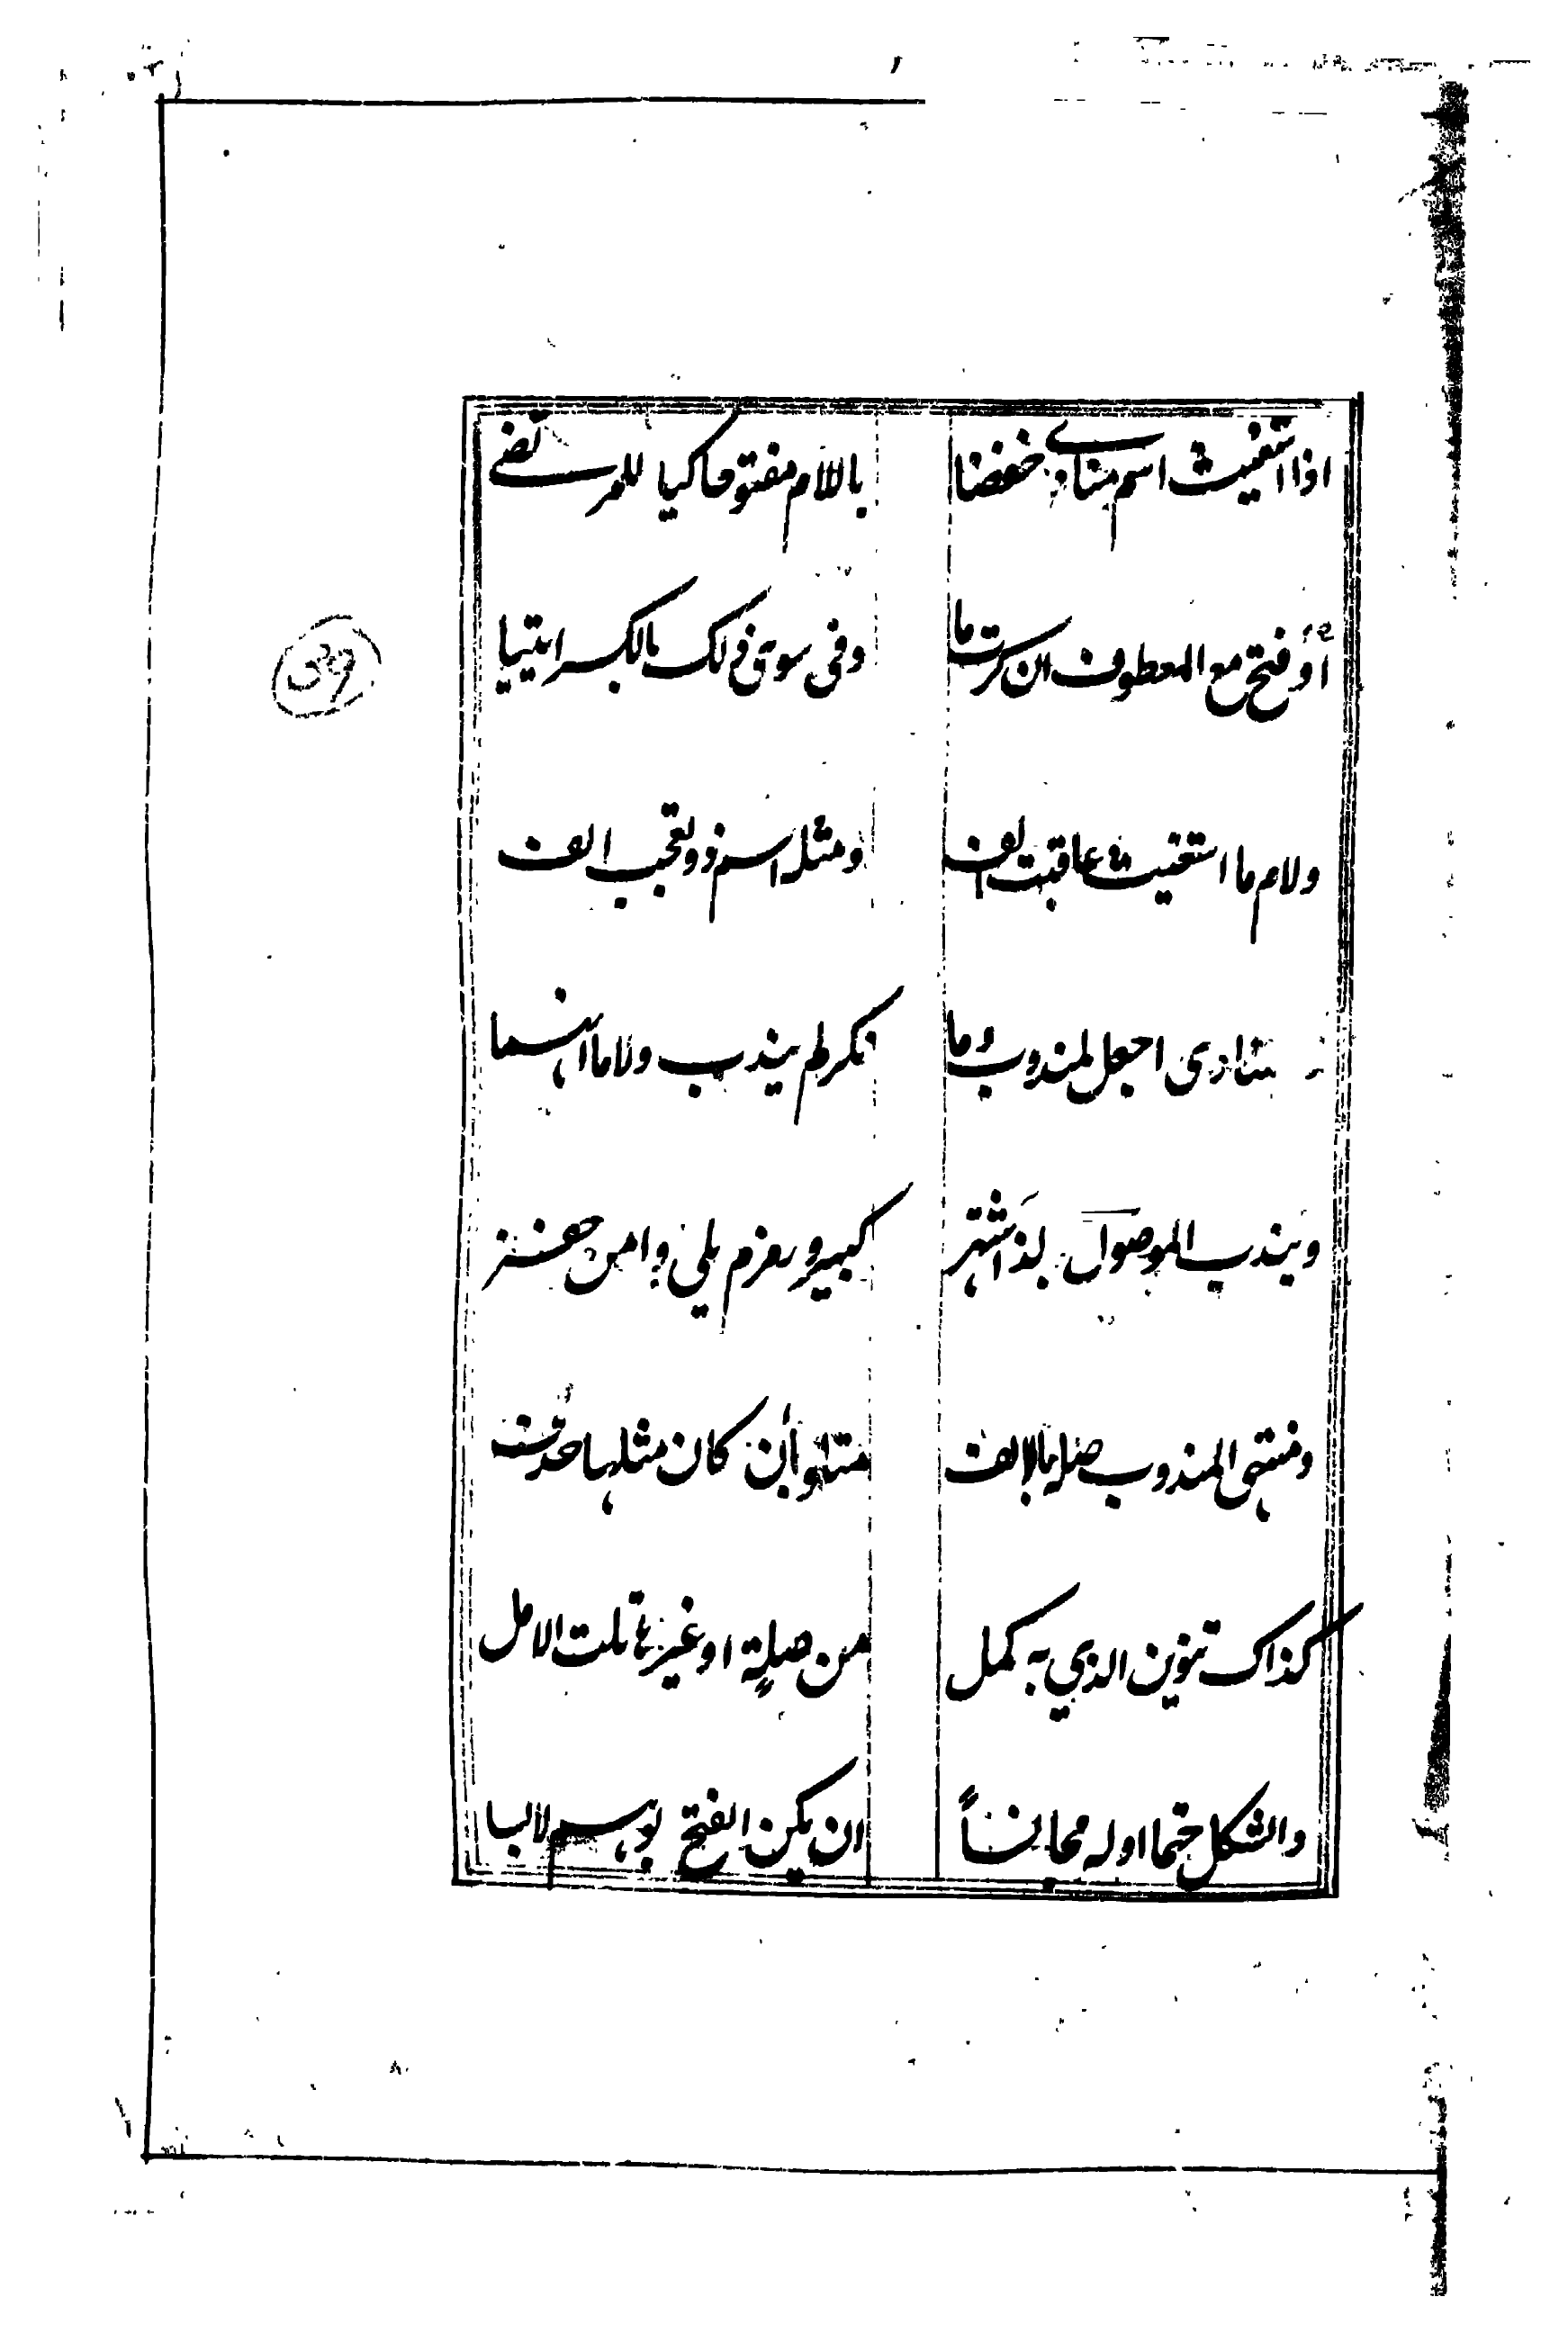 اذا استغيث اسم منادى خفضا باللام مفتوحا كيا للمرتضى
أو فتح مع المعطوف ان كررت ما وفى سوى ذلك بالكسر ايتيا
ولام ما استغيث عاقبت الف ومثله اسم ذو تعجب الف
منادى اجعل لمندوب وما نكر لم يندب ولا ما ابهما
ويندب الموصول بذا اشتهر كبير زمزم يلي وا من حفر
ومنتهى المندوب صله بالالف متلو أن كان مثلها حذف
كذاك تنوين الذي به كمل من صلة او غيرها نلت الامل
والشكل حتما اوله مجانساً ان يكن الفتح بوهم لابسا
39